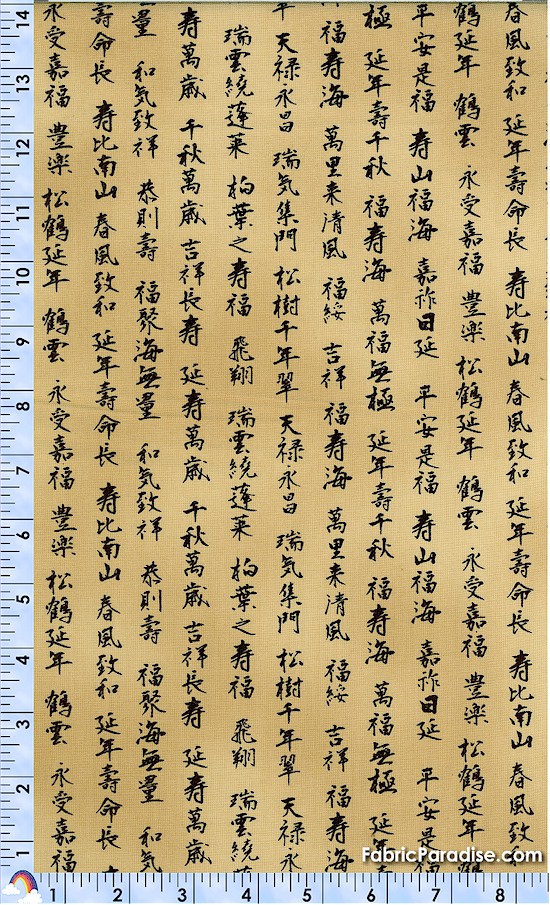 春風致和 延年壽命長 寿比南山 春風致和 延年壽命長 寿比南山 春風致
鶴延年 鶴雲 永受嘉福 豊樂 松鶴延年 鶴雲 永受嘉福 豊樂 松鶴延年
平安是福 寿山福海 嘉祚日延 平安是福 寿山福海 嘉祚日延 平安是福
極 延年壽千秋 福寿海 萬福無極 延年壽千秋 福寿海 萬福無極 延年
福寿海 萬里来清風 福綏 吉祥 福寿海 萬里来清風 福綏 吉祥 福寿海
天禄永昌 瑞気集門 松樹千年翠 天禄永昌 瑞気集門 松樹千年翠 天禄永
瑞雲繞蓬莱 柏葉之寿福 飛翔 瑞雲繞蓬莱 柏葉之寿福 飛翔 瑞雲繞
寿萬歳 千秋萬歳 吉祥長寿 延寿萬歳 千秋萬歳 吉祥長寿 延寿萬歳
量 和気致祥 恭則壽 福聚海無量 和気致祥 恭則壽 福聚海無量 和気
壽命長 寿比南山 春風致和 延年壽命長 寿比南山 春風致和 延年壽命長
永受嘉福 豊樂 松鶴延年 鶴雲 永受嘉福 豊樂 松鶴延年 鶴雲 永受嘉福
14
13
12
11
10
9
8
7
6
5
4
3
2
1
FabricParadise.com
1 2 3 4 5 6 7 8